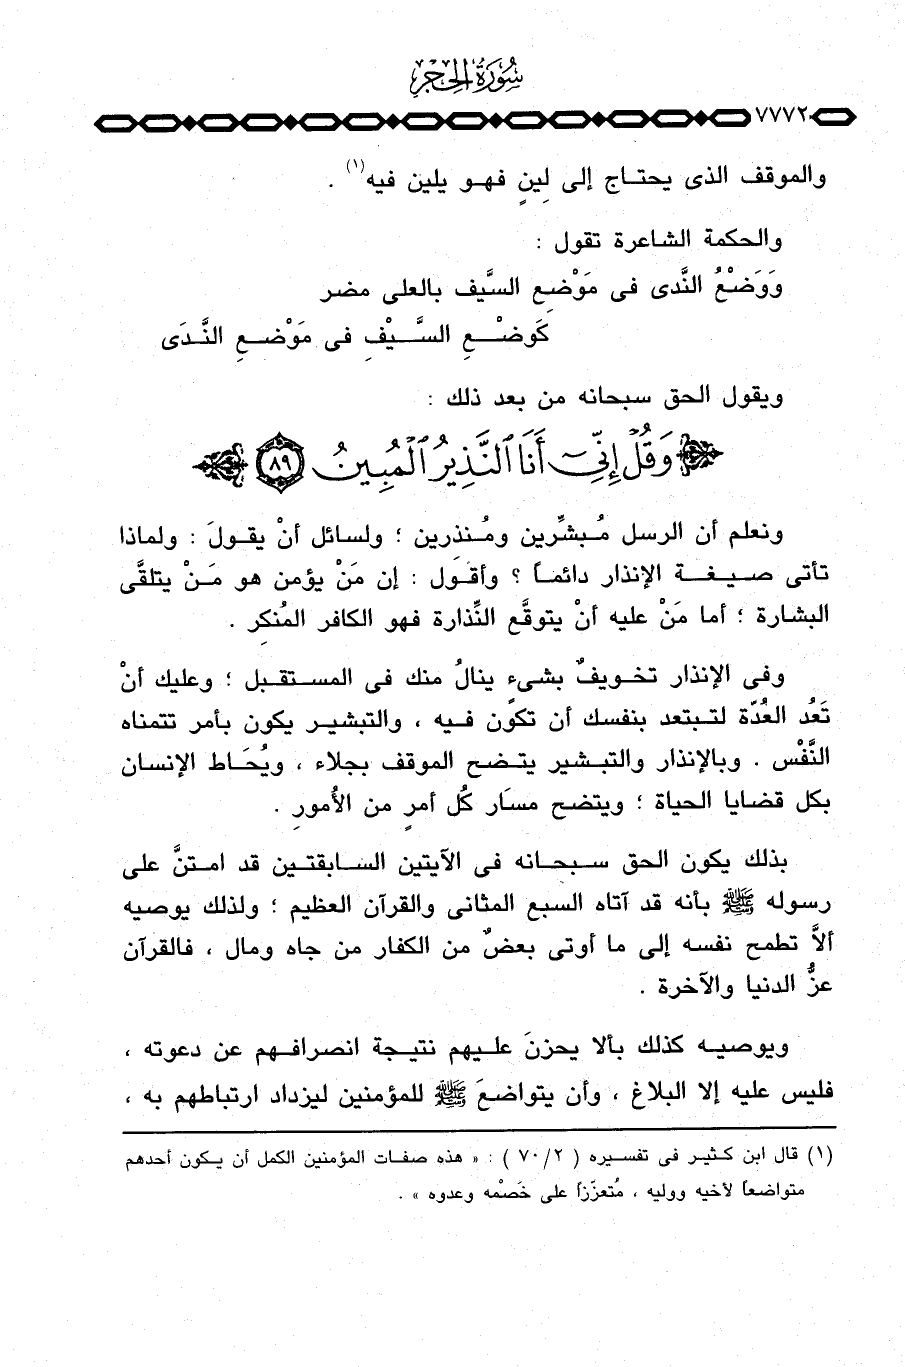 سُورَةُ الْحِجْرِ
٧٧٧٢
والموقف الذى يحتاج إلى لِينٍ فهو يلين فيه(١) .
والحكمة الشاعرة تقول :
وَوَضْعُ النَّدى فى مَوْضِعِ السَّيف بالعلى مضر
كَوضْعِ السَّيْفِ فى مَوْضعِ النَّدَى
ويقول الحق سبحانه من بعد ذلك :
وَقُلْ إِنِّىٓ أَنَا ٱلنَّذِيرُ ٱلْمُبِينُ ٨٩
ونعلم أن الرسل مُبشِّرين ومُنذرين ؛ ولسائل أنْ يقولَ : ولماذا
تأتى صيغة الإنذار دائماً ؟ وأقول : إن مَنْ يؤمن هو مَنْ يتلقَّى
البشارة ؛ أما مَنْ عليه أنْ يتوقَّع النِّذارة فهو الكافر المُنكِر .
وفى الإنذار تخويفٌ بشىءٍ ينالُ منك فى المستقبل ؛ وعليك أنْ
تَعُد العُدّة لتبتعد بنفسك أن تكون فيه ، والتبشير يكون بأمر تتمناه
النَّفْس . وبالإنذار والتبشير يتضح الموقف بجلاء ، ويُحَاط الإنسان
بكل قضايا الحياة ؛ ويتضح مسَار كُل أمرٍ من الأُمورِ .
بذلك يكون الحق سبحانه فى الآيتين السابقتين قد امتنَّ على
رسوله ﷺ بأنه قد آتاه السبع المثانى والقرآن العظيم ؛ ولذلك يوصيه
ألاَّ تطمح نفسه إلى ما أوتى بعضٌ من الكفار من جاه ومال ، فالقرآن
عزُّ الدنيا والآخرة .
ويوصيه كذلك بألا يحزنَ عليهم نتيجة انصرافهم عن دعوته ،
فليس عليه إلا البلاغ ، وأن يتواضعَ ﷺ للمؤمنين ليزداد ارتباطهم به ،
(١) قال ابن كثير فى تفسيره ( ٧٠/٢ ) : « هذه صفات المؤمنين الكمل أن يكون أحدهم
متواضعاً لأخيه ووليه ، مُتعزّزاً على خَصْمه وعدوه » .